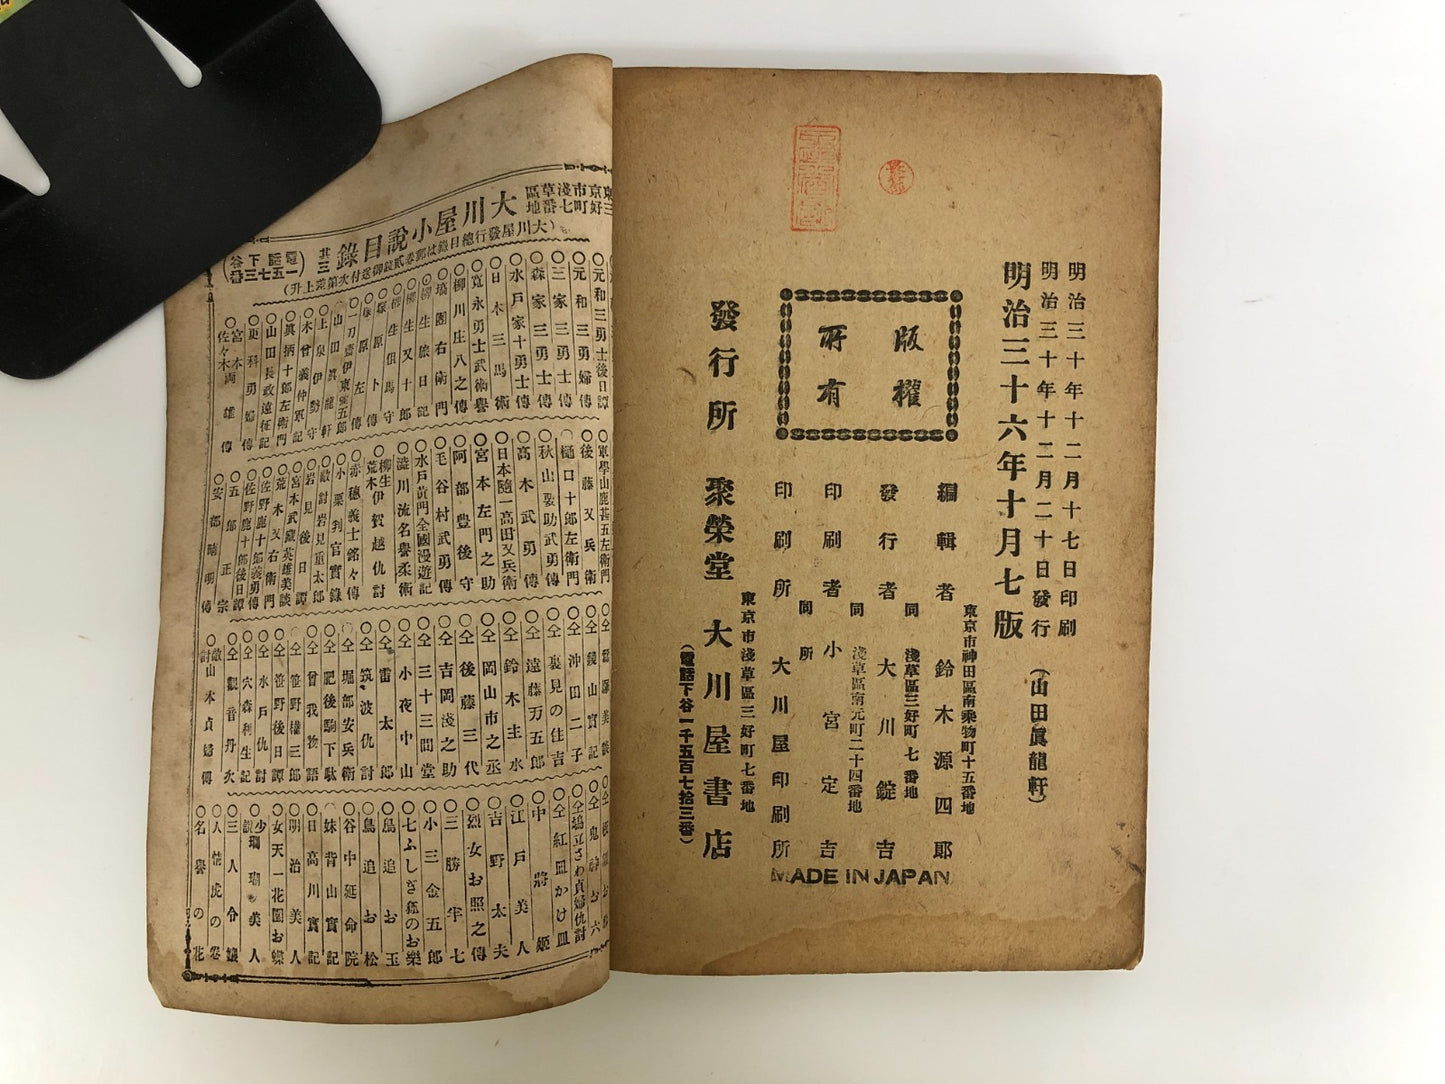 明治三十年十二月十七日印刷
明治三十年十二月二十日發行
(山田眞龍軒)
明治三十六年十月七版
版權所有
東京市神田區南乘物町十五番地
編輯者 鈴木源四郎
同 淺草區三好町七番地
發行者 大川錠吉
同 淺草區南元町二十四番地
印刷者 小宮定吉
同所
印刷所 大川屋印刷所
東京市淺草區三好町七番地
發行所 聚榮堂 大川屋書店
(電話下谷一千五百七拾三番)
MADE IN JAPAN
東京市淺草區
三好町七番地
大川屋小說目錄
其三
(電話下谷一五七三番)
○元和三勇士後日譚
○元和三勇婦傳
○三家三勇士傳
○森家三勇士傳
○水戶家十勇士傳
○日本三馬術
○寬永勇士武術譽
○柳川庄八之傳
○塙團右衛門
○柳生旅日記
○柳生又十郎
○柳生但馬守
○塚原卜傳
○塚原左門
○一刀齋伊東彌五郎
○山田眞龍軒
○上泉伊勢守
○木曾義仲軍記
○眞柄十郎左衛門
○山田長政遠征記
○更科勇婦傳
○宮本佐々木兩雄傳
○軍學山鹿甚五左衛門
○後藤又兵衛
○樋口十郎左衛門
○秋山要助武勇傳
○高木武勇傳
○日本隨一高田又兵衛
○宮本左門之助
○阿部豊後守
○毛谷村武勇傳
○水戶黃門全國漫遊記
○澁川流名譽柔術
○柳生荒木伊賀越仇討
○赤穗義士銘々傳
○小栗判官實錄
○敵討岩見重太郎
○岩見後日譚
○宮本武藏英雄美談
○荒木又右衛門
○佐野鹿十郎義勇傳
○佐野鹿十郎後日譚
○五郎正宗
○安部晴明傳
○仝鏡山實記
○仝沖田二子
○仝裏見の住吉
○仝遠藤万五郎
○仝鈴木主水
○仝岡山市之丞
○仝後藤三代
○仝吉岡淺之助
○仝三十三間堂
○仝小夜中山
○仝雷太郎
○仝筑波仇討
○仝堀部安兵衛
○仝肥後駒下駄
○仝曾我物語
○仝笹野權三郎
○仝笹野後日譚
○仝水戶仇討
○仝穴森利生記
○仝觀音丹次
○敵討山木貞婦傳
○仝鬼神お六
○仝塲立さわ貞婦仇討
○仝紅皿かけ皿
○中將姬
○江戶美人
○吉野太夫
○烈女お照之傳
○三勝半七
○小三金五郎
○七ふしぎ狐のお樂
○鳥追お玉
○鳥追お松
○谷中延命院
○妹背山實記
○日高川實記
○明治美人
○女天一花園お蝶
○三人令孃
○人情虎の卷
○名譽の花